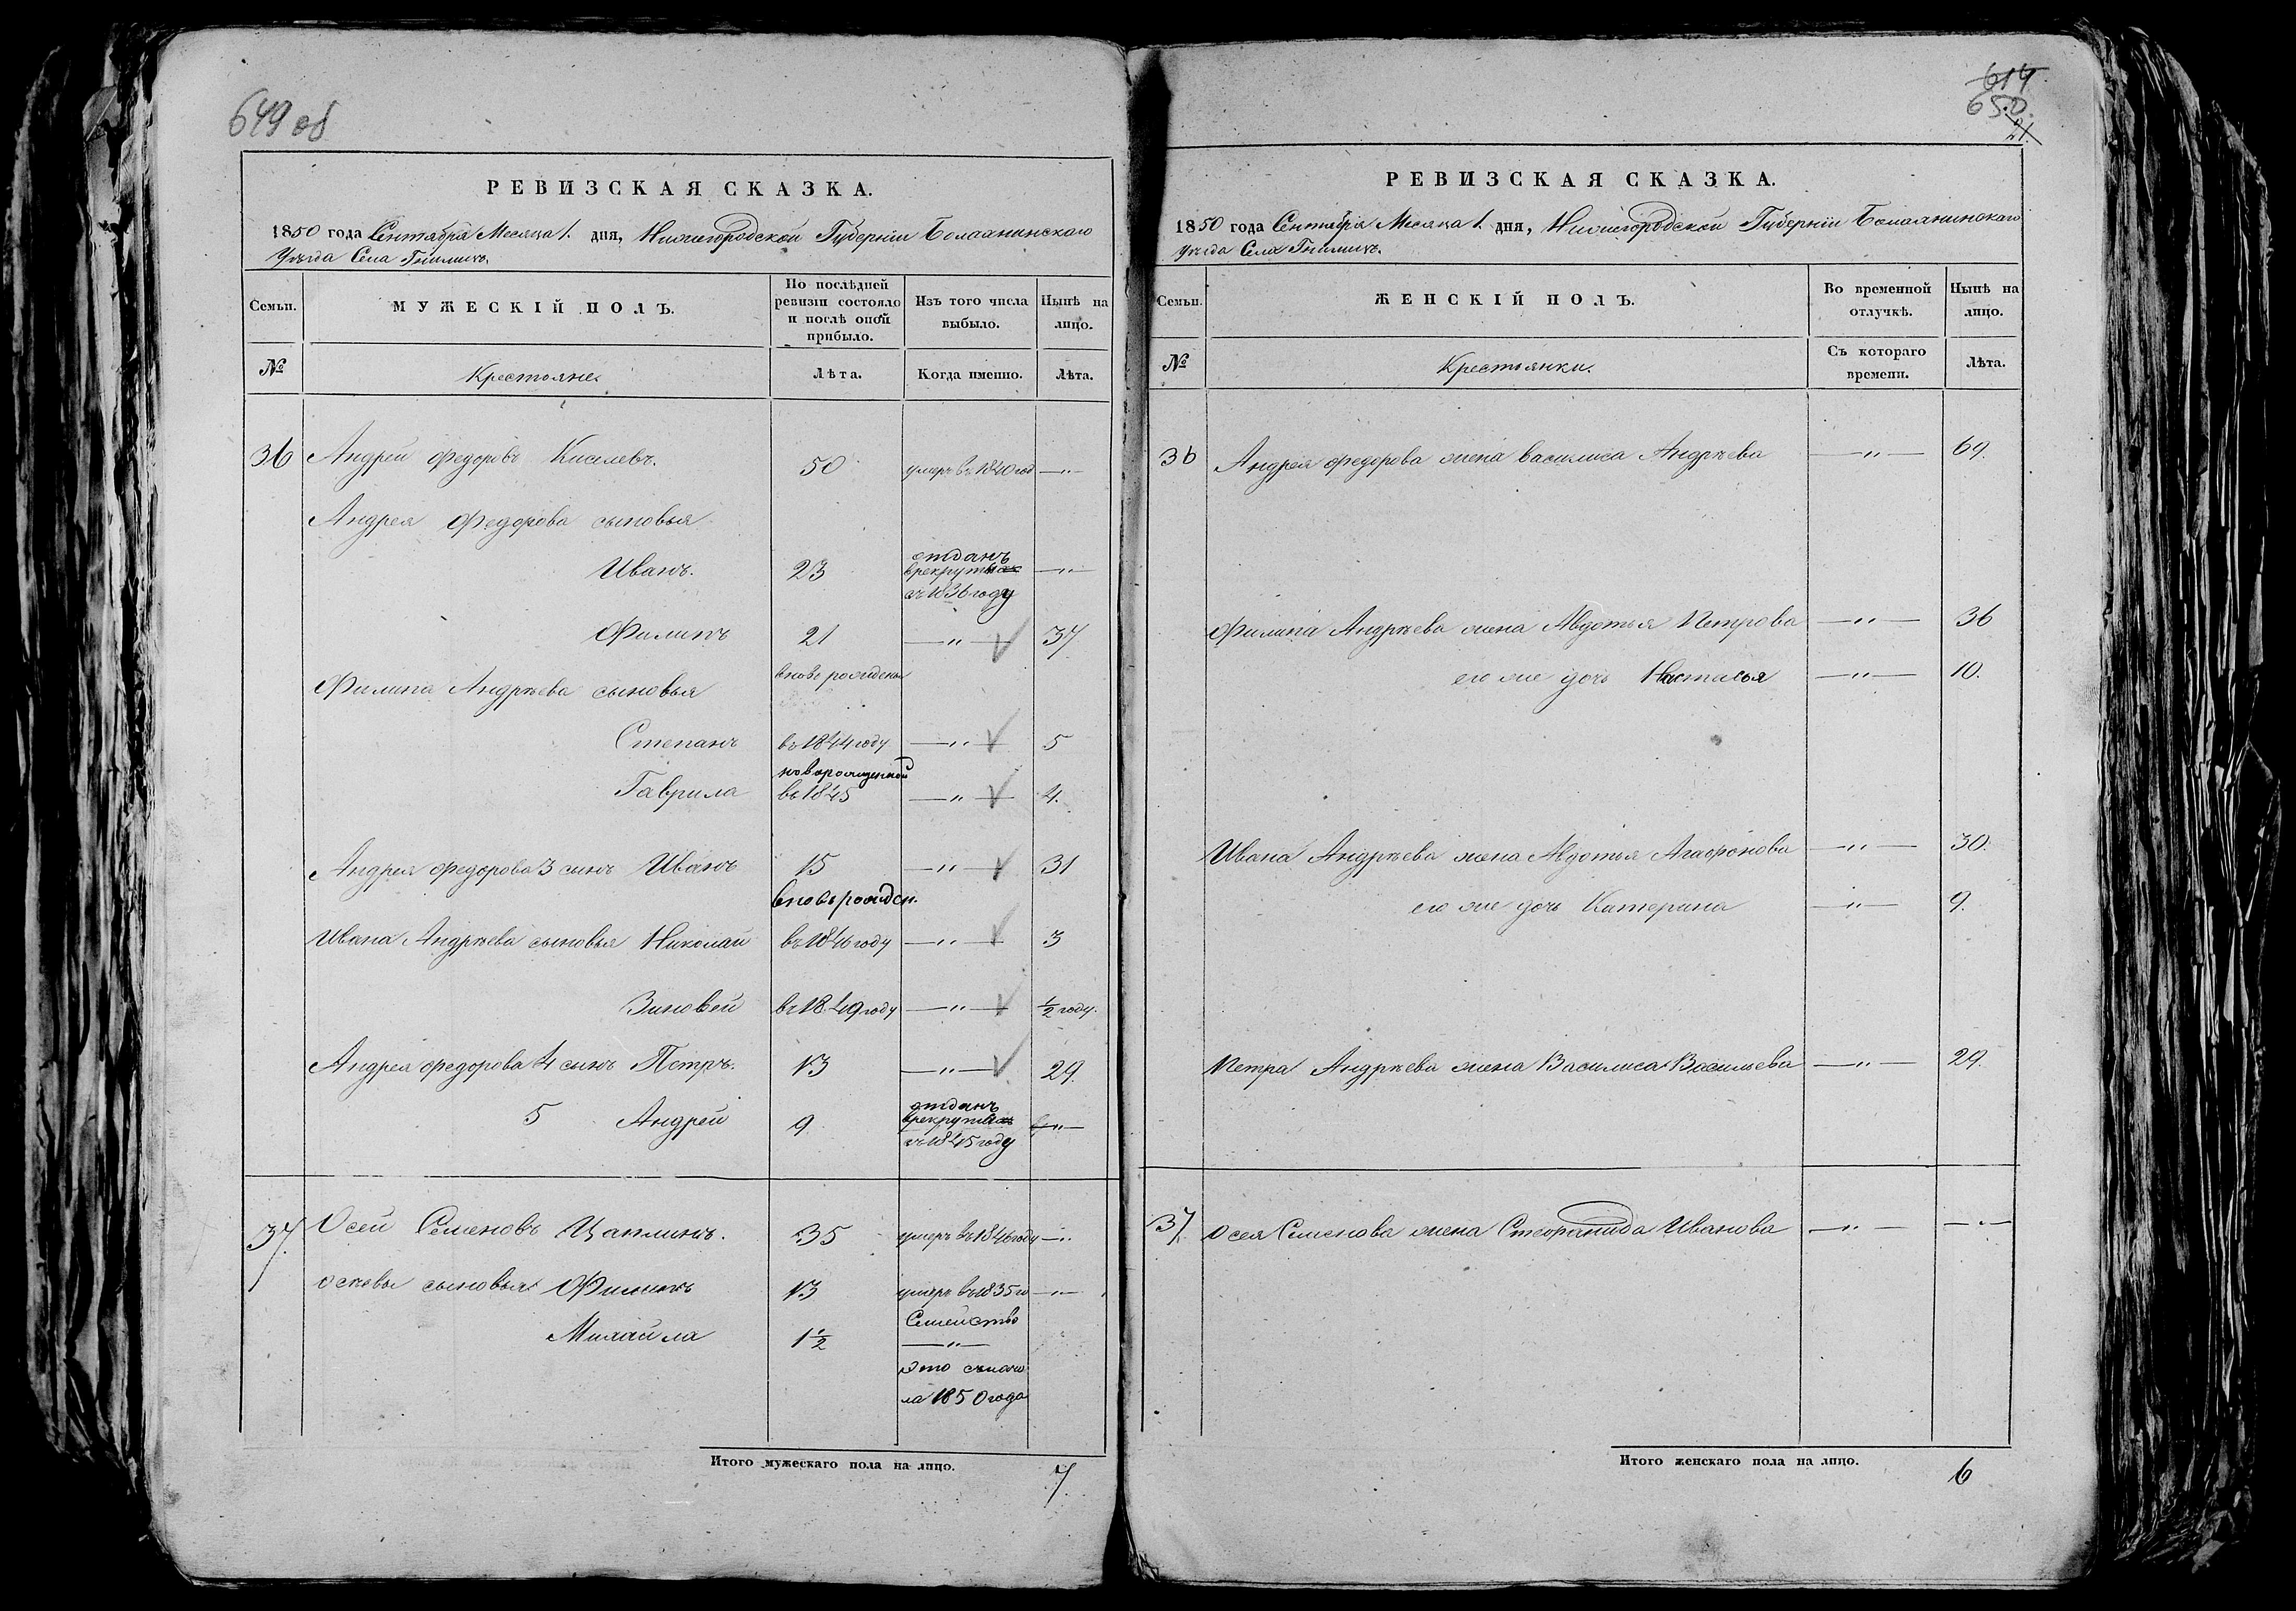 649 об
РЕВИЗСКАЯ СКАЗКА.
1850 года Сентября Месяца 1. дня, Нижегородской Губерніи Балахнинскаго
Уѣзда Села
Семьи.
МУЖЕСКІЙ ПОЛЪ.
По послѣдней ревизіи состояло и послѣ оной прибыло.
Изъ того числа выбыло.
Нынѣ на лицо.
№
Крестьяне.
Лѣта.
Когда именно.
Лѣта.
36 Андрей Федоровъ Киселевъ. 50 умеръ въ 1840 год —〃—
Андрея Федорова сыновья
Иванъ. 23 отданъ в рекруты въ 1836 году —〃—
Филипъ 21 —〃— 37
Филипа Андрѣева сыновья вновь рожденые
Степанъ въ 1844 году —〃— 5
Гаврила новорожденной въ 1845 —〃— 4.
Андрея Федорова 3 сынъ Иванъ 15 —〃— 31
вновь рожден.
Ивана Андрѣева сыновья Николай въ 1846 году —〃— 3
Зиновей въ 1849 году —〃— ½ году.
Андрея Федорова 4 сынъ Петръ. 13 —〃— 29.
5 Андрей 9 отданъ в рекруты въ 1845 году —〃—
37. Осей Семеновъ Цаплинъ. 35 умеръ въ 1846 году —〃—
сыновья Филипъ 13 умеръ въ 1835 го —〃—
Михайла 1½ Семейство
—〃—
Это
ла 1850 года
Итого мужескаго пола на лицо. 7
614
650.
21
РЕВИЗСКАЯ СКАЗКА.
1850 года Сентября Месяца 1. дня, Нижегородской Губерніи Балахнинскаго
Уѣзда Села
Семьи.
ЖЕНСКІЙ ПОЛЪ.
Во временной отлучкѣ.
Нынѣ на лицо.
№
Крестьянки.
Съ котораго времени.
Лѣта.
36 Андрея Федорова жена Василиса Андрѣева —〃— 69.
Филипа Андрѣева жена Авдотья Петрова —〃— 36
его же дочь Настасья —〃— 10.
Ивана Андрѣева жена Авдотья Агафонова —〃— 30.
его же дочь Катерина —〃— 9.
Петра Андрѣева жена Василиса Васильева —〃— 29.
37. Осея Семенова жена Стефанида Иванова —〃— —〃—
Итого женскаго пола на лицо. 6